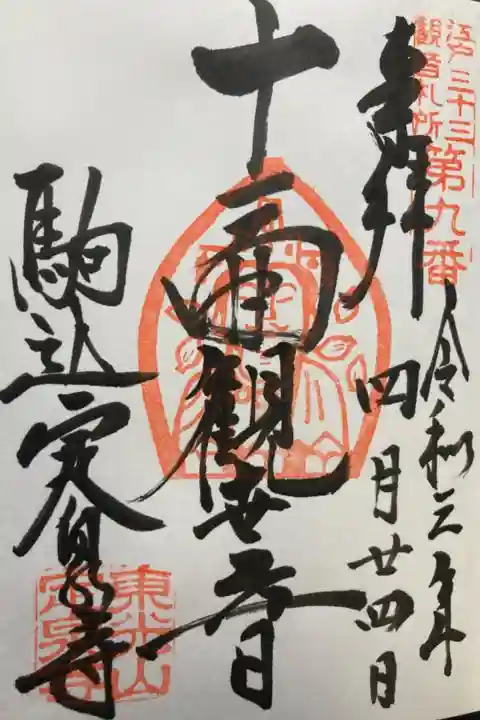 江戸三十三
観音札所
第九番
奉拝
令和三年
四月廿四日
十一面観世音
駒込定泉寺
東光山
定泉寺